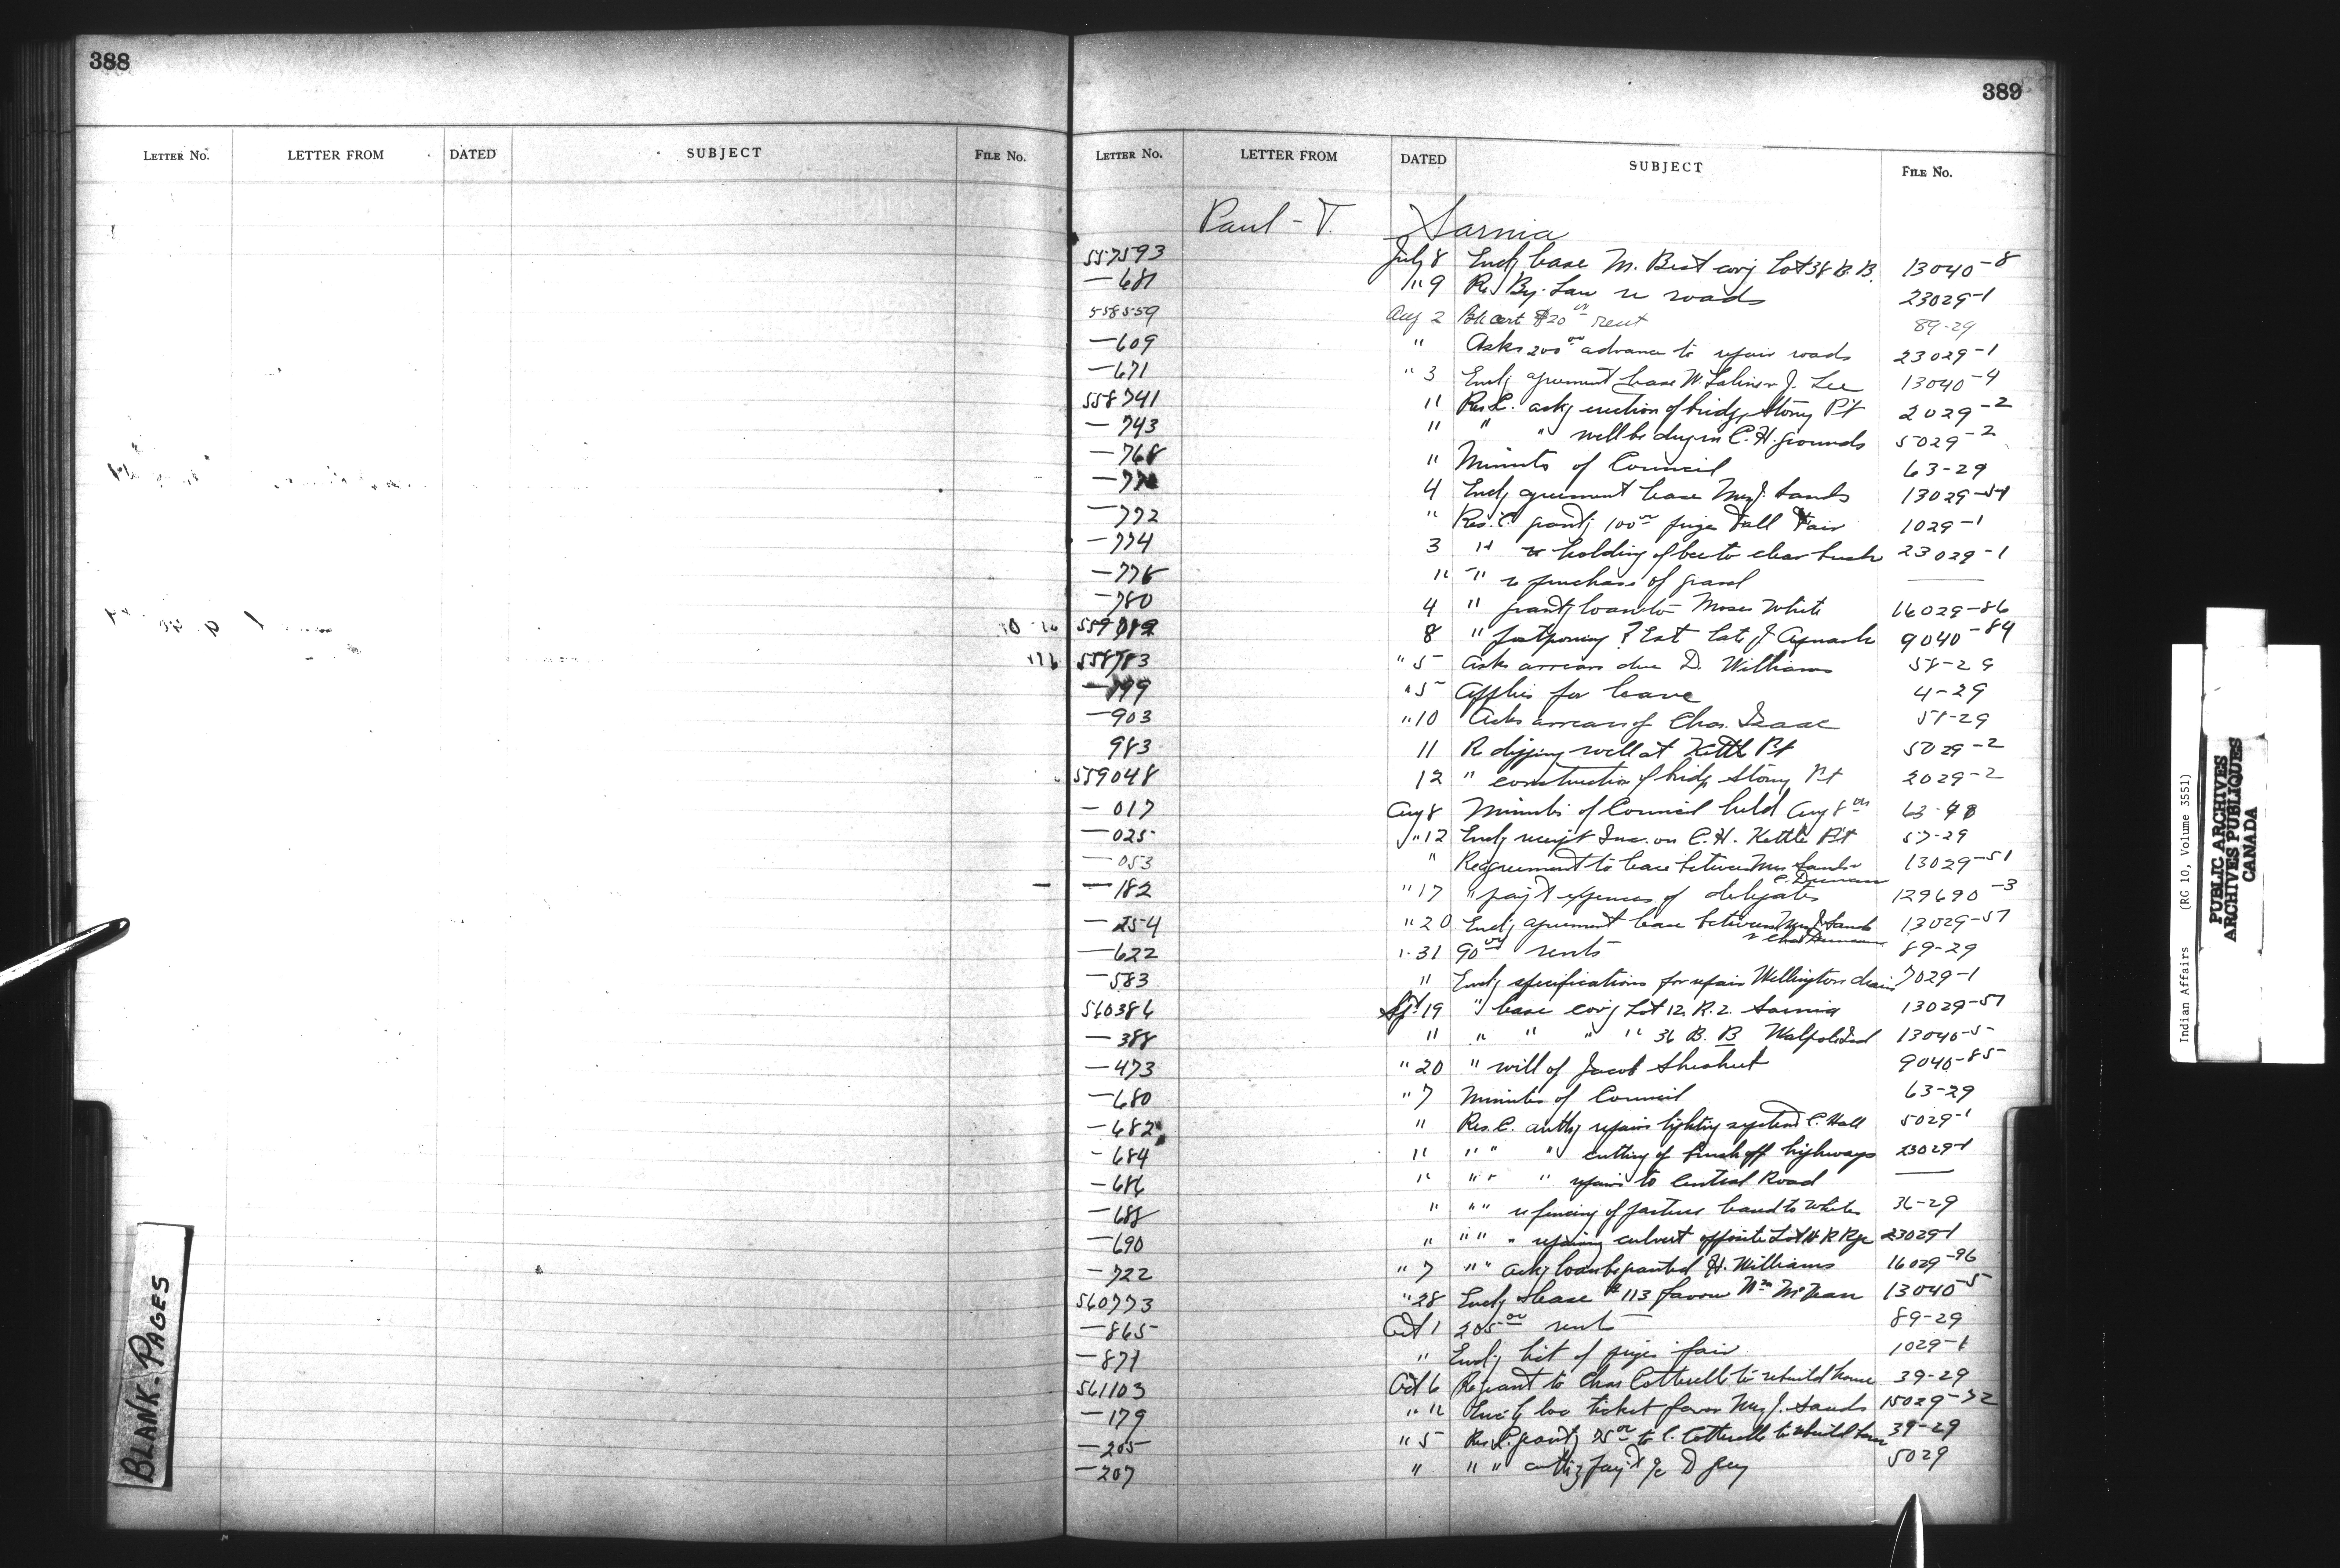 388
LETTER No. LETTER FROM DATED SUBJECT FILE No.
BLANK-PAGES
389
LETTER No. LETTER FROM DATED SUBJECT FILE No.
Paul - T. Sarnia
557593 July 8 Encl'g lease M. Best cov'g Lot 38 B.B. 13040-8
— 681 " 9 Re By-Law re roads 23029-1
558559 Aug 2 Bk cert $20 00 rent 89-29
— 609 " Asks 200 00 advance to repair roads 23029-1
— 671 " 3 Encl'g agreement lease J. Lee 13040-4
558741 " Res. C. ask'g erection of bridge Stony Pt 2029-2
— 743 " " " well be dug in C. H. grounds 5029-2
— 768 " Minutes of Council 63-29
4 Encl'g agreement lease Mrs J. Sands 13029-51
— 772 " Res. C. grant'g 100 00 prizes Fall Fair 1029-1
— 774 3 " re holding of bee to clear bush 23029-1
— 778 " " re purchase of gravel —
— 780 4 " grant'g loan to Moses White 16029-86
559089 8 " postponing ? Est late J 9040-84
558783 " 5 Asks arrears due D. Williams 58-29
— 799 " 5 Applies for leave 4-29
— 903 " 10 Asks arrears of Chas. Isaac 58-29
983 11 Re digging well at Kettle Pt 5029-2
559048 12 " construction of bridge Stony Pt 2029-2
— 017 Aug 8 Minutes of Council held Aug 8 th
— 025 " 12 Encl'g receipt Ins. on C. H. Kettle Pt 57-29
— 053 " Re agreement to lease between Mrs Sands 13029-51
— 182 " 17 " pay't expenses of delegates 129690-3
— 254 " 20 Encl'g agreement lease between Mrs J Sands 13029-51
— 622 " 31 90 00 rents 89-29
— 583 " Encl'g specifications for repair Wellington drain 7029-1
560386 Sept 19 " lease cov'g Lot 12 R. 2. Sarnia 13029-51
— 388 " " " " " 36 B. B Walpole Isd 13040-5
— 473 " 20 " will of Jacob 9040-85
— 680 " 7 Minutes of Council 63-29
— 682 " Res. C. auth'g repairs lighting system C. Hall 5029-1
— 684 " " " " cutting of brush off highways 23029-1
— 686 " " " " repairs to Central Road —
— 688 " " " re fencing of pasture leased to White 36-29
— 690 " " " " repairing culvert opposite Lot R Rge 23029-1
— 722 " 7 " " ask'g loan be granted H. Williams 16029-96
560773 " 28 Encl'g lease # 113 favour Wm 13040-5
— 865 Oct 1 205 00 rents 89-29
— 871 " Encl'g list of prizes fair 1029-1
561103 Oct 6 Re grant to Chas Cotterelle to rebuild house 39-29
— 179 " 11 Encl'g loc ticket favor Mrs J. Sands 15029-72
— 205 " 5 Res C. grant'g 75 00 to C. Cotterelle to rebuild house 39-29
— 207 " " " auth'g pay't D 5029
Indian Affairs (RG 10, Volume 3551)
PUBLIC ARCHIVES
ARCHIVES PUBLIQUES
CANADA